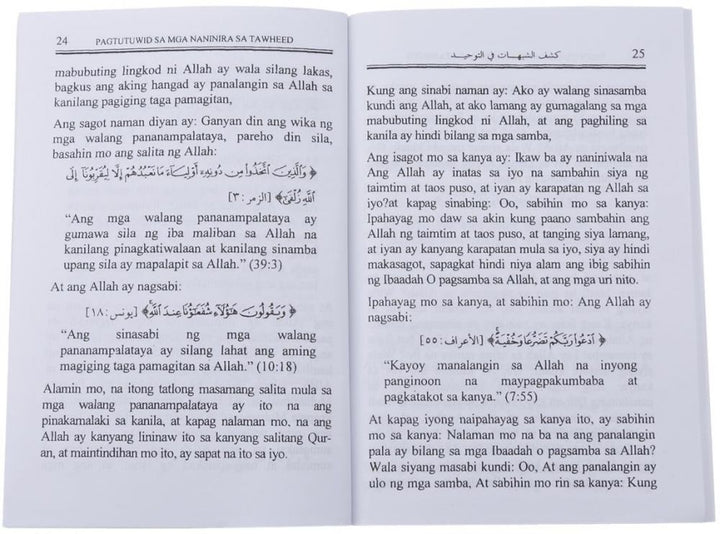 24 PAGTUTUWID SA MGA NANINIRA SA TAWHEED
mabubuting lingkod ni Allah ay wala silang lakas,
bagkus ang aking hangad ay panalangin sa Allah sa
kanilang pagiging taga pamagitan,
Ang sagot naman diyan ay: Ganyan din ang wika ng
mga walang pananampalataya, pareho din sila,
basahin mo ang salita ng Allah:
﴿ وَٱلَّذِينَ ٱتَّخَذُوا۟ مِن دُونِهِۦٓ أَوْلِيَآءَ مَا نَعْبُدُهُمْ إِلَّا لِيُقَرِّبُونَآ إِلَى
ٱللَّهِ زُلْفَىٰٓ ﴾ [الزمر: ٣]
“Ang mga walang pananampalataya ay
gumawa sila ng iba maliban sa Allah na
kanilang pinagkatiwalaan at kanilang sinamba
upang sila ay mapalapit sa Allah.” (39:3)
At ang Allah ay nagsabi:
﴿ وَيَقُولُونَ هَٰٓؤُلَآءِ شُفَعَٰٓؤُنَا عِندَ ٱللَّهِ ﴾ [يونس: ١٨]
“Ang sinasabi ng mga walang
pananampalataya ay silang lahat ang aming
magiging taga pamagitan sa Allah.” (10:18)
Alamin mo, na itong tatlong masamang salita mula sa
mga walang pananampalataya ay ito na ang
pinakamalaki sa kanila, at kapag nalaman mo, na ang
Allah ay kanyang lininaw ito sa kanyang salitang Qur-
an, at maintindihan mo ito, ay sapat na ito sa iyo.
كشف الشبهات في التوحيد 25
Kung ang sinabi naman ay: Ako ay walang sinasamba
kundi ang Allah, at ako lamang ay gumagalang sa mga
mabubuting lingkod ni Allah, at ang paghiling sa
kanila ay hindi bilang sa mga samba,
Ang isagot mo sa kanya ay: Ikaw ba ay naniniwala na
Ang Allah ay inatas sa iyo na sambahin siya ng
taimtim at taos puso, at iyan ay karapatan ng Allah sa
iyo?at kapag sinabing: Oo, sabihin mo sa kanya:
Ipahayag mo daw sa akin kung paano sambahin ang
Allah ng taimtim at taos puso, at tanging siya lamang,
at iyan ay kanyang karapatan mula sa iyo, siya ay hindi
makasagot, sapagkat hindi niya alam ang ibig sabihin
ng Ibaadah O pagsamba sa Allah, at ang mga uri nito.
Ipahayag mo sa kanya, at sabihin mo: Ang Allah ay
nagsabi:
﴿ ٱدْعُوا۟ رَبَّكُمْ تَضَرُّعًا وَخُفْيَةً ﴾ [الأعراف: ٥٥]
“Kayoy manalangin sa Allah na inyong
panginoon na maypagpakumbaba at
pagkatakot sa kanya.” (7:55)
At kapag iyong naipahayag sa kanya ito, ay sabihin
mo sa kanya: Nalaman mo na ba na ang panalangin
pala ay bilang sa mga Ibaadah o pagsamba sa Allah?
Wala siyang masabi kundi: Oo, At ang panalangin ay
ulo ng mga samba, At sabihin mo rin sa kanya: Kung